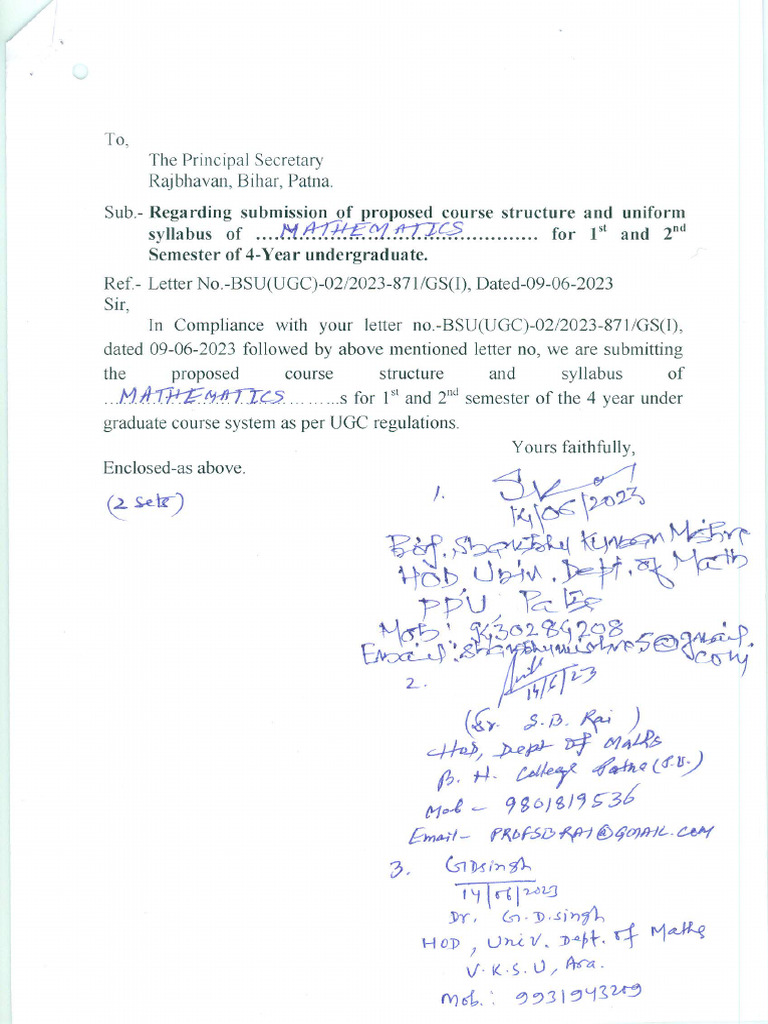 To,
The Principal Secretary
Rajbhavan, Bihar, Patna.
Sub.- Regarding submission of proposed course structure and uniform
syllabus of ....MATHEMATICS.................... for 1st and 2nd
Semester of 4-Year undergraduate.
Ref.- Letter No.-BSU(UGC)-02/2023-871/GS(I), Dated-09-06-2023
Sir,
In Compliance with your letter no.-BSU(UGC)-02/2023-871/GS(I),
dated 09-06-2023 followed by above mentioned letter no, we are submitting
the proposed course structure and syllabus of
...MATHEMATICS.........s for 1st and 2nd semester of the 4 year under
graduate course system as per UGC regulations.
Yours faithfully,
Enclosed-as above.
(2 sets)
1.
14/06/2023
Prof. Shambhu Kumar Mishra
HOD Univ. Dept. of Math
PPU, Patna
Mob: 9430284208
Email:
@gmail.
com
2.
14/6/23
(Dr. S.B. Rai)
HOD, Dept of Maths
B. N. College Patna (P.U.)
Mob - 9801819536
Email- PROFSBRAI@GMAIL.COM
3. GDsingh
14/06/2023
Dr. G.D.singh
HOD, Univ. Dept. of Maths
V.K.S.U, Ara.
Mob.: 9931943209